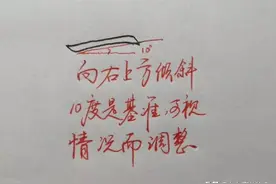 10°
向右上方倾斜
10度是基准,可视
情况而调整